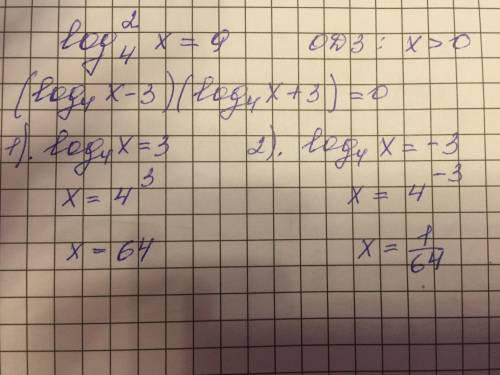 log₄² x = 9 ОДЗ: x > 0
(log₄ x - 3)(log₄ x + 3) = 0
1). log₄ x = 3 2). log₄ x = -3
x = 4³ x = 4⁻³
x = 64 x = 1/64